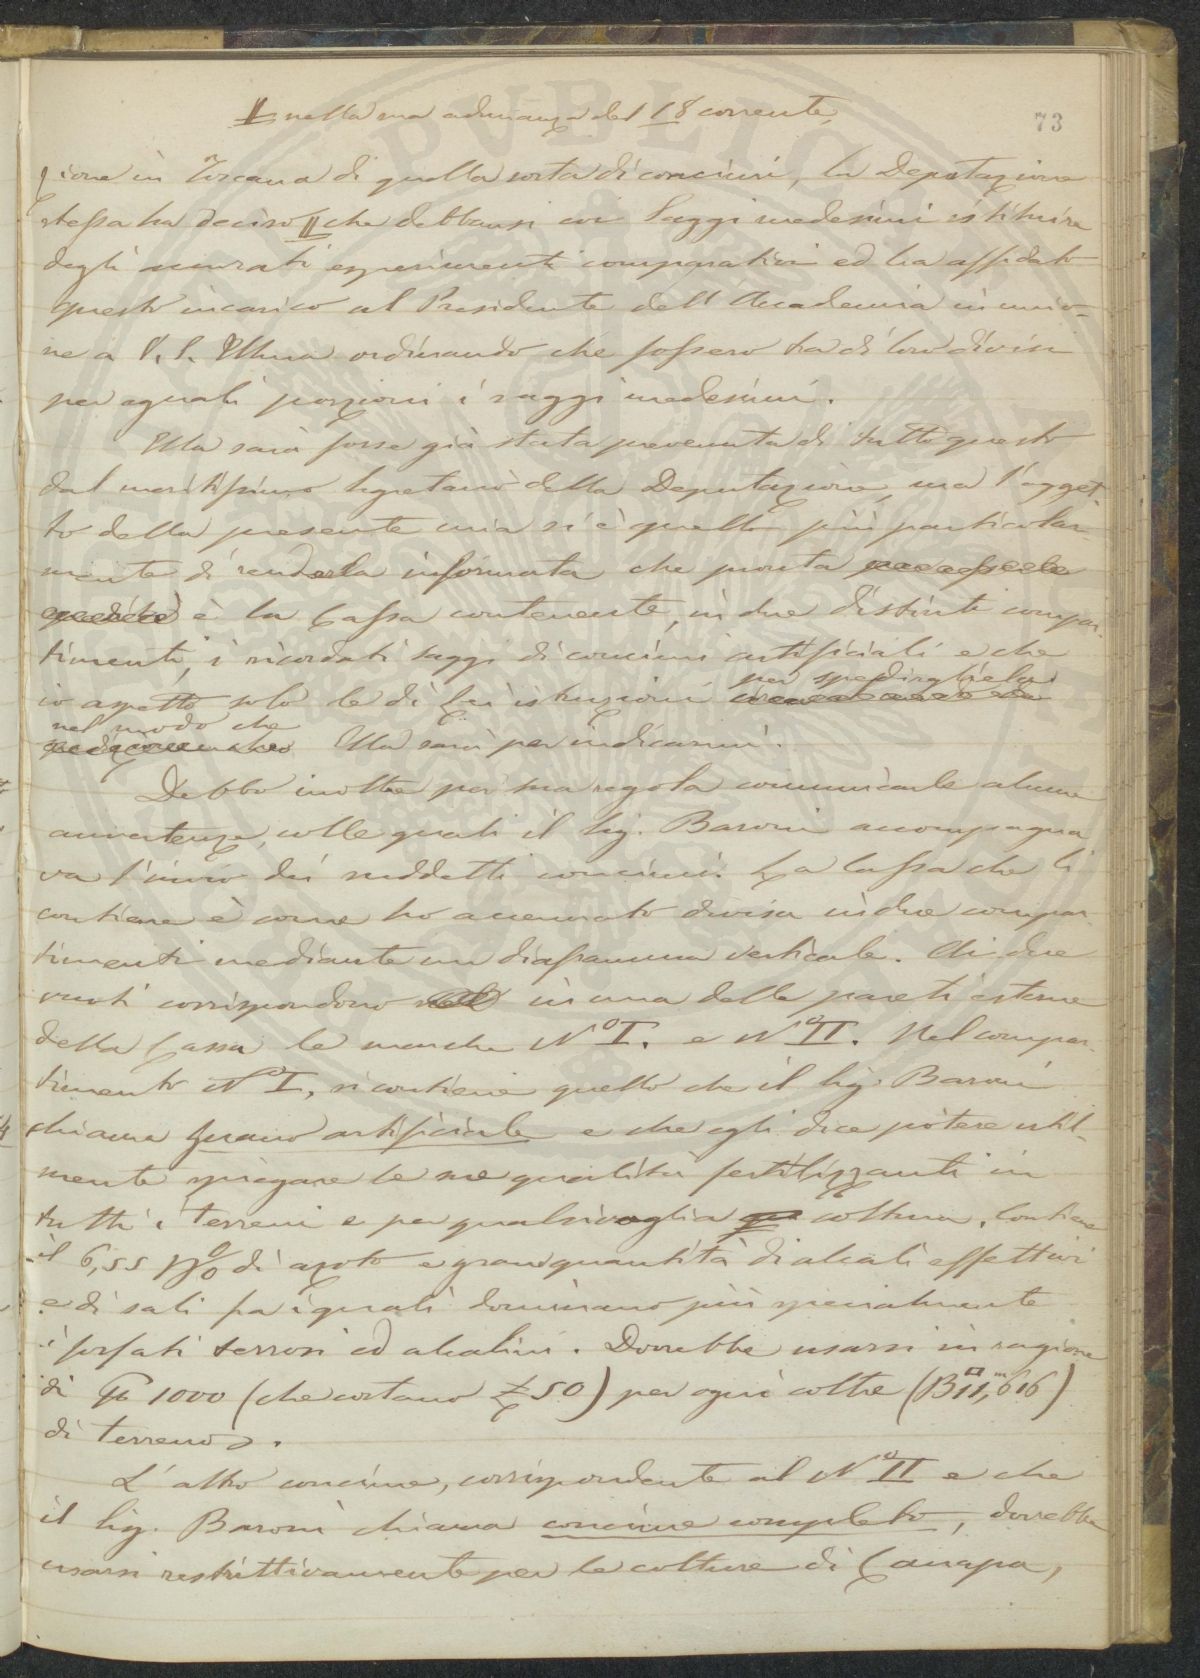 || nella sua adunanza del 18 corrente,
73
zione in Toscana di quella sorta di concimi, la Deputazione
stessa ha deciso || che debbansi coi Saggi medesimi istituire
degli accurati esperimenti comparativi ed ha affidato
questo incarico al Presidente dell'Accademia in unio-
ne a V. S. Illma ordinando che fossero tra di loro divisi
per eguali porzioni i saggi medesimi.
Ella sarà forse già stata prevenuta di tutto questo
dal meritissimo Segretario della Deputazione, ma l'ogget-
to della presente mia si è quello più particolar-
mente di renderla informata che pronta
è la Cassa contenente, in due distinti compar-
timenti, i ricordati saggi di concimi artificiali e che
per spedirgliela
io aspetto solo le di Lei istruzioni
nel modo che
Ella sarà per indicarmi.
Debbo inoltre per sua regola comunicarle alcune
avvertenze, colle quali il Sig. Baroni accompagna
va l'invio dei suddetti concimi. La Cassa che li
contiene è come ho accennato divisa in due compar-
timenti mediante un diaframma verticale. Ai due
vuoti corrispondono in una delle pareti esterne
della Cassa le marche N° I. e N° II. Nel compar-
timento N° I, si contiene quello che il Sig. Baroni
chiama Guano artificiale e che egli dice potere util-
mente spiegare le sue qualità fertilizzanti in
tutti i terreni e per qualsivoglia coltura. Contiene
il 6,55 p% di azoto e gran quantità di alcali effettivi
e di sali fra i quali dominano più specialmente
i fosfati terrosi ed alcalini. Dovrebbe usarsi in ragione
di 1000 (che costano £ 50) per ogni coltre (B 11, 616)
di terreno.
L'altro concime, corrispondente al N° II e che
il Sig. Baroni chiama concime completo, dovrebbe
usarsi restrittivamente per le colture di Canapa,